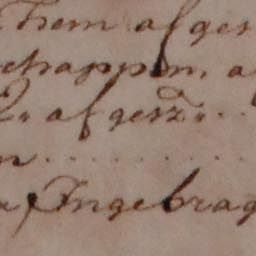 Them afges
chappen, a
2. afgesz:...
n..........
Ingebrag